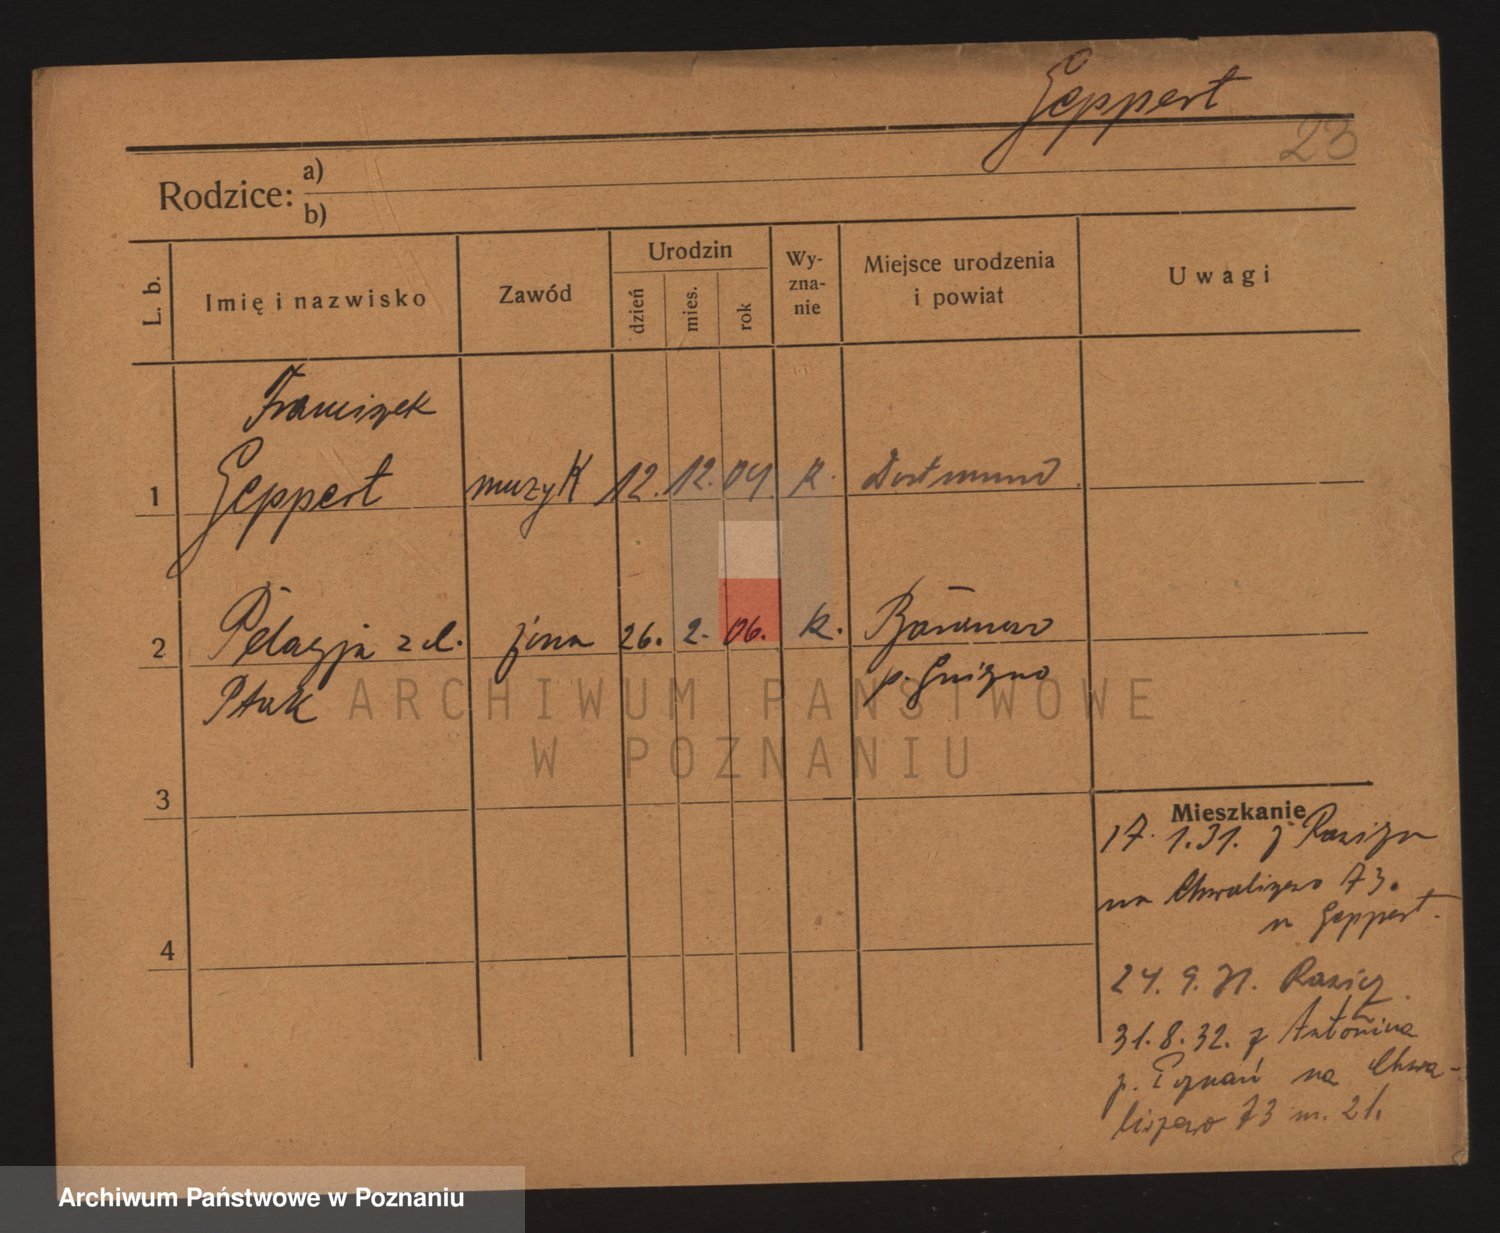 Geppert
23
Rodzice: a)
b)
L. b.
Imię i nazwisko
Zawód
Urodzin
dzień
mies.
rok
Wy-
zna-
nie
Miejsce urodzenia
i powiat
Uwagi
Franciszek
1 Geppert muzyk 12. 12. 04 k. Dortmund
2 Pelagja z d. żona 26. 2. 06. k. Baranowo
Ptak p. Gniezno
3
4
Mieszkanie
17. 1. 31. z
na Chwaliszewo 73.
u Geppert.
24. 9. 31.
31. 8. 32. z Antonina
p. Poznań na Chwa-
liszewo 73 m. 21.
ARCHIWUM PAŃSTWOWE
W POZNANIU
Archiwum Państwowe w Poznaniu